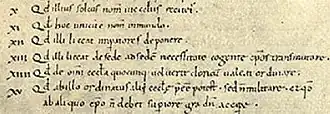 X Qd illius solius nom̄ in ecclīis recitet͛.
XI Qd hoc unicū ē nom̄ in mundo.
XII Qd illi liceat imꝑatores deponere.
XIII Qd illi liceat de sede ad sedē necessitate cogente ep̄os transmutare.
XIIII Qd de omī eccl̄a quocunq; voluerit clericū valeat ordinare.
XV Qd ab illo ordinatus alii eccl̄ę p̄ee potest, sed n̄ militare. et qd
ab aliquo ep̄o n̄ debet supiorē gradū accipe.